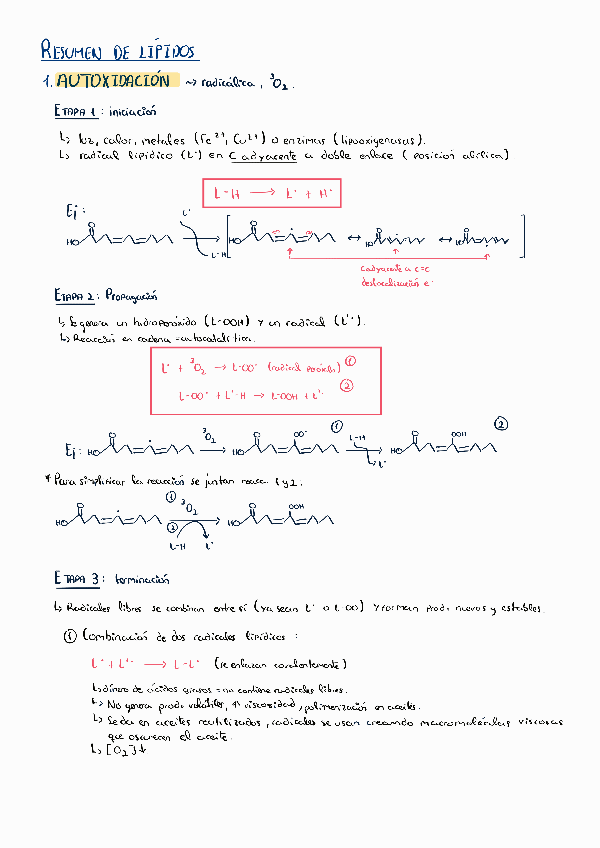 RESUMEN DE LÍPIDOS
1. AUTOXIDACIÓN ~> radicálica, ³O₂.
ETAPA 1: iniciación
↳ luz, calor, metales (Fe²⁺, Cu²⁺) o enzimas (lipooxigenasas).
↳ radical lipídico (L·) en C adyacente a doble enlace (posición alílica)
L-H → L· + H·
Ej:
L·
HO O → L-H [HO O ↔ HO O ↔ HO O]
C adyacente a C=C
deslocalización e⁻
ETAPA 2: Propagación
↳ Se genera un hidroperóxido (L-OOH) y un radical (L'·).
↳ Reacción en cadena = autocatalítica.
L· + ³O₂ → L-OO· (radical peróxido) ①
L-OO· + L'-H → L-OOH + L'· ②
Ej: HO O ³O₂ → HO O OO· ① L-H → L· HO O OOH ②
* Para simplificar la reacción se juntan reacc. 1 y 2.
HO O ① ³O₂ ② L-H L· → HO O OOH
ETAPA 3: terminación
↳ Radicales libres se combinan entre sí (ya sean L· o L-OO·) y forman prods nuevos y estables.
① Combinación de dos radicales lipídicos:
L· + L'· → L-L' (se enlazan covalentemente)
↳ dímero de ácidos grasos = no contiene radicales libres.
↳ No genera prods volátiles, ↑ viscosidad, polimerización en aceites.
↳ Se da en aceites reutilizados, radicales se usan creando macromoléculas viscosas
que oscurecen el aceite.
↳ [O₂]↓